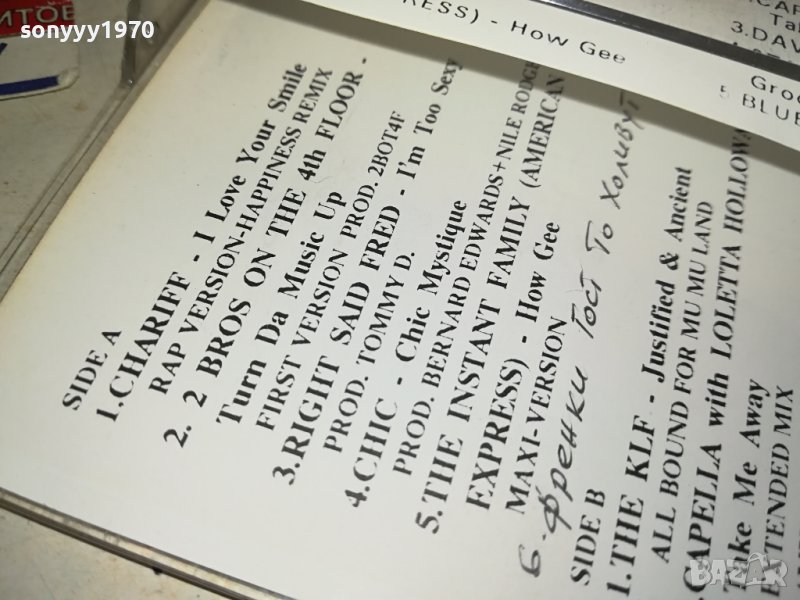 sonyyy1970
ИТОЕ
RESS) - How Gee
3.DAV
5 BLUE
SIDE A
1.CHARIFF - I Love Your Smile
RAP VERSION-HAPPINESS REMIX
2. 2 BROS ON THE 4th FLOOR -
Turn Da Music Up
FIRST VERSION PROD. 2BOT4F
3.RIGHT SAID FRED - I'm Too Sexy
PROD. TOMMY D.
4.CHIC - Chic Mystique
PROD. BERNARD EDWARDS+NILE RODGE
5.THE INSTANT FAMILY (AMERICAN
EXPRESS) - How Gee
MAXI-VERSION
6. Френки Гост То Холивут
SIDE B
1.THE KLF - Justified & Ancient
ALL BOUND FOR MU MU LAND
CAPELLA with LOLETTA HOLLOWA
Take Me Away
EXTENDED MIX
BAZAR